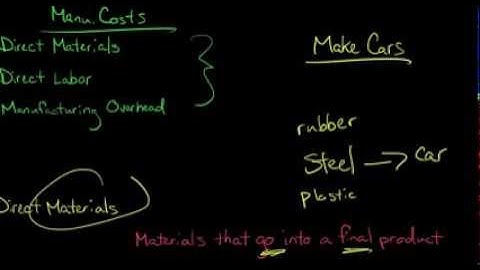 Manu. Costs
Direct Materials
Direct Labor
Manufacturing Overhead
Make Cars
rubber
Steel → Car
plastic
Direct Materials
Materials that go into a final product